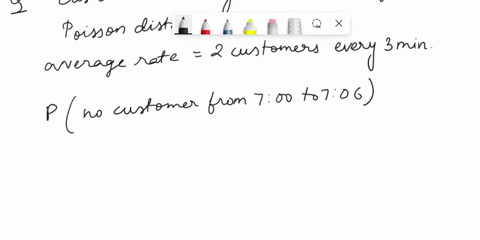 Poisson dist.
average rate = 2 customers every 3 min.
P ( no customer from 7:00 to 7:06 )